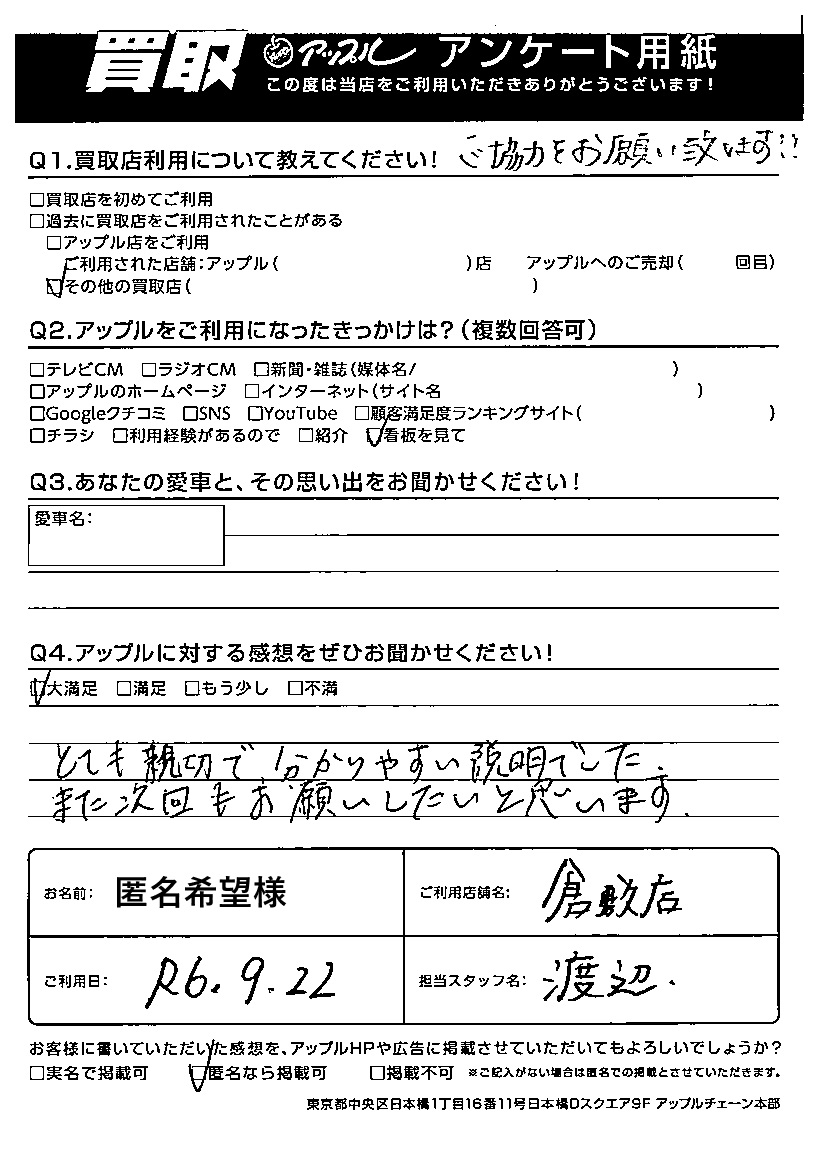 買取 アップル アンケート用紙
この度は当店をご利用いただきありがとうございます!
Q1.買取店利用について教えてください! ご協力をお願い致します!!
□買取店を初めてご利用
□過去に買取店をご利用されたことがある
□アップル店をご利用
ご利用された店舗:アップル( )店 アップルへのご売却( 回目)
☑その他の買取店( )
Q2.アップルをご利用になったきっかけは?(複数回答可)
□テレビCM □ラジオCM □新聞・雑誌(媒体名/ )
□アップルのホームページ □インターネット(サイト名 )
□Googleクチコミ □SNS □YouTube □顧客満足度ランキングサイト( )
□チラシ □利用経験があるので □紹介 ☑看板を見て
Q3.あなたの愛車と、その思い出をお聞かせください!
愛車名:
Q4.アップルに対する感想をぜひお聞かせください!
☑大満足 □満足 □もう少し □不満
とても親切で分かりやすい説明でした.
また次回もお願いしたいと思います.
お名前: 匿名希望様 ご利用店舗名: 倉敷店
ご利用日: R6.9.22 担当スタッフ名: 渡辺.
お客様に書いていただいた感想を、アップルHPや広告に掲載させていただいてもよろしいでしょうか?
□実名で掲載可 ☑匿名なら掲載可 □掲載不可 ※ご記入がない場合は匿名での掲載とさせていただきます。
東京都中央区日本橋1丁目16番11号日本橋Dスクエア9F アップルチェーン本部